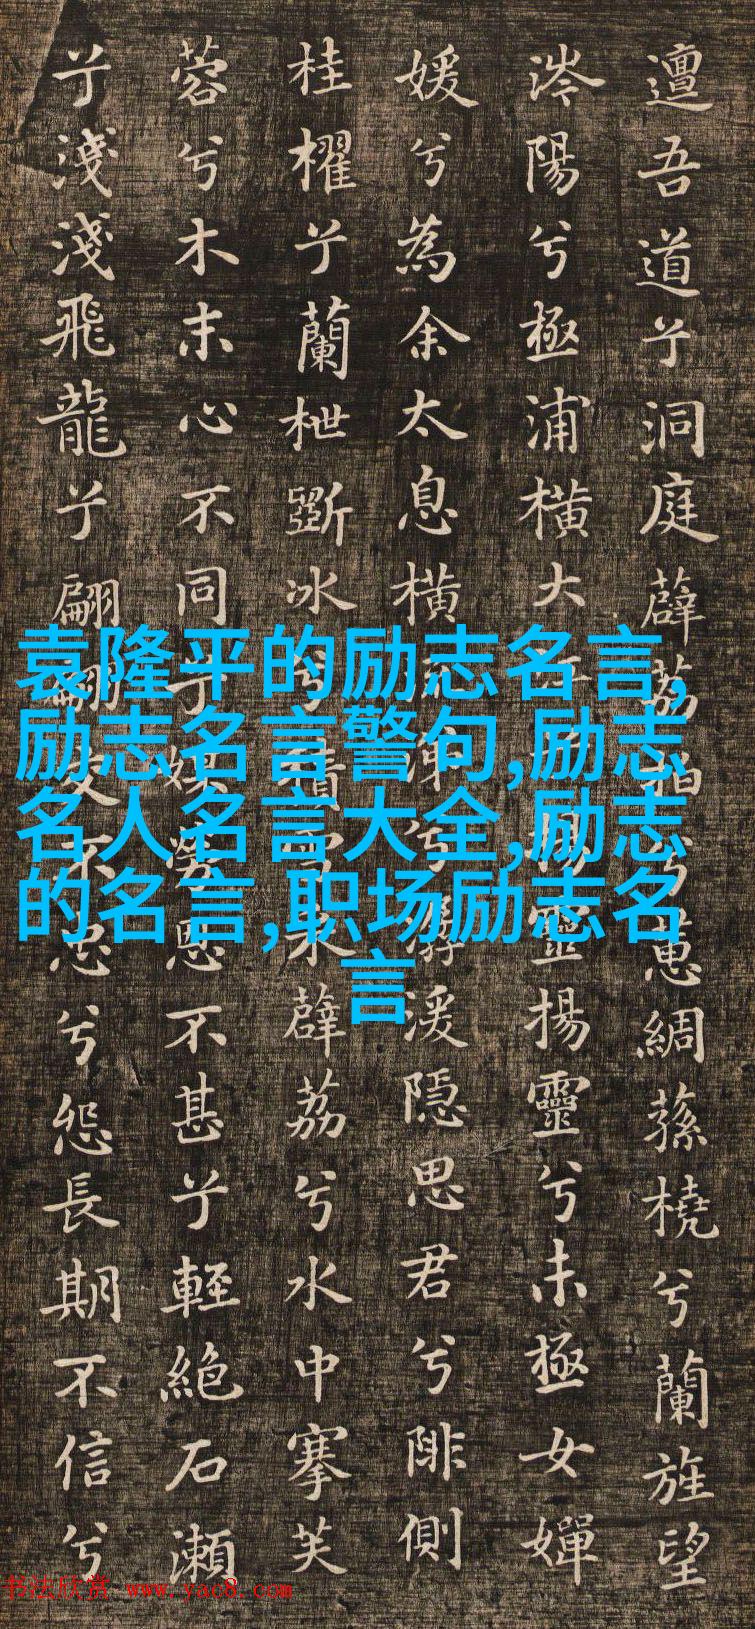 邅吾道兮洞庭薜荔拍兮蕙綢蓀橈兮蘭旌望
涔陽兮極浦橫大江兮揚靈揚靈兮未極女嬋
媛兮為余太息橫流涕兮潺湲隱思君兮陫側
桂櫂兮蘭枻斲冰兮積雪采薜荔兮水中搴芙
蓉兮木末心不同兮媒勞恩不甚兮輕絕石瀨
兮淺淺飛龍兮翩翩交不忠兮怨長期不信兮
袁隆平的励志名言,
励志名言警句,励志
名人名言大全,励志
的名言,职场励志名
言
书法欣赏 www.yac8.com